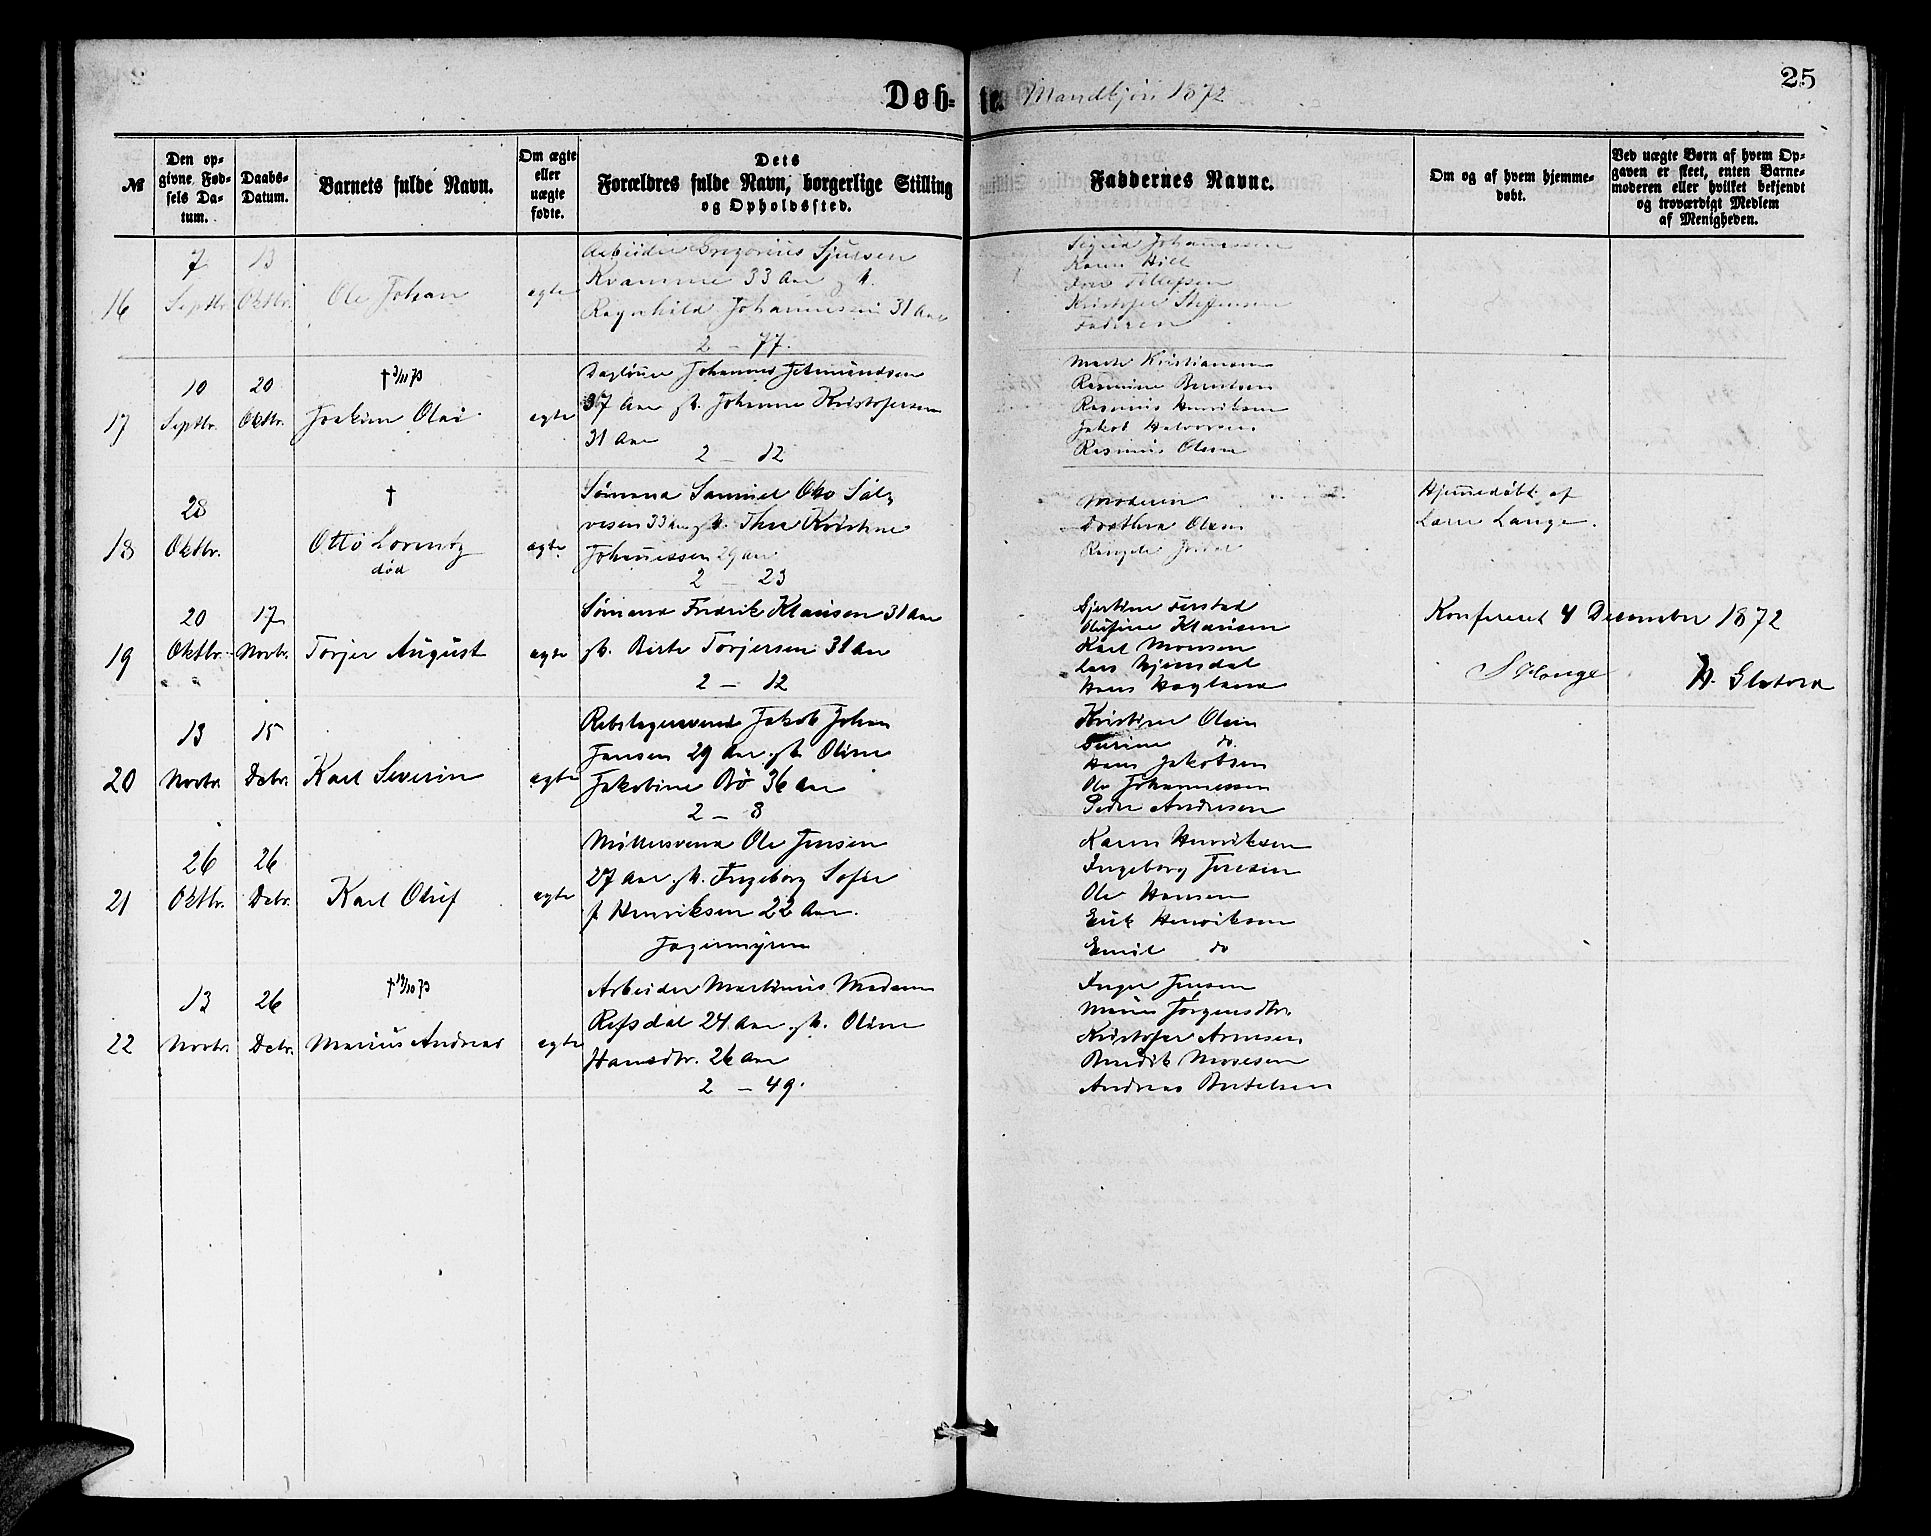 25
Døb- te. Mandkjøn 1872
№
Den op-
givne Fød-
sels Da-
tum.
Daabs-
Datum.
Barnets fulde Navn.
Om ægte
eller
uægte
fødte.
Dets
Forældres fulde Navn, borgerlige Stilling
og Opholdssted.
Faddernes Navne.
Om og af hvem hjemme-
døbt.
Ved uægte Børn af hvem Op-
gaven er skeet, enten Barne-
moderen eller hvilket bekjendt
og troværdigt Medlem
af Menigheden.
16
7
Septbr.
13
Oktbr.
Ole Johan
egte
Arbeider Gregorius Sjursen
Kvamme 33 Aar g. h.
Ragnhild Johannesen 31 Aar
2 — 77.
Sigrid Johannesen
Karen Hill
Tollefsen
Kristofer Steffensen
Faderen
17
10
Septbr.
20
Oktbr.
† 3/11 73
Joakim Olai
egte
Dagleier Johannes Jetmundsen
37 Aar g. h. Johanne Kristofersen
31 Aar
2 — 12
Marte Kristiansen
Rasmine Berntsen
Rasmus Henriksen
Jakob Halvorsen
Rasmus Olsen
18
28
Oktbr.
†
Otto Lorentz
død
egte
Sømand Samuel Otto Søl-
vesen 33 Aar g. h. Thea Kristine
Johannessen 29 Aar
2 — 23
Moderen
Dorthea Olsen
Hjemmedøbt af
Lars Lange.
19
20
Oktbr.
17
Novbr.
Torjer August
egte
Sømand Fredrik Klausen 31 Aar
g. h. Berte Torjersen 31 Aar
2 — 12
Gjertine
Olufine Klausen
Karl Monsen
Lars
Hans Hagland
Konfereret 4 December 1872
S Hauge
20
13
Novbr.
15
Debr.
Karl Severin
egte
Rebslagersvend Jakob Johan
Jansen 29 Aar g. h. Oline
Jakobine Bø 36 Aar
2 — 8
Kristine Olsen
do.
Hans Jakobsen
Ole Johannessen
Peder Andersen
21
26
Oktbr.
26
Debr.
Karl Oluf
egte
Møllersvend Ole Jensen
27 Aar g. h. Ingeborg Sofie
f Henriksen 22 Aar.
Karen Henriksen
Ingeborg Jensen
Ole Hansen
Erik Henriksen
Emil do
22
13
Novbr.
26
Debr.
† 19/10 73
Marius Andreas
egte
Arbeider Martinus Madsen
Refsdal 24 Aar g. h. Oline
Hansdtr. 26 Aar
2 — 49.
Inger Jensen
Jørgensdtr.
Kristofer Arnesen
Bendik Mosesen
Andreas Bertelsen